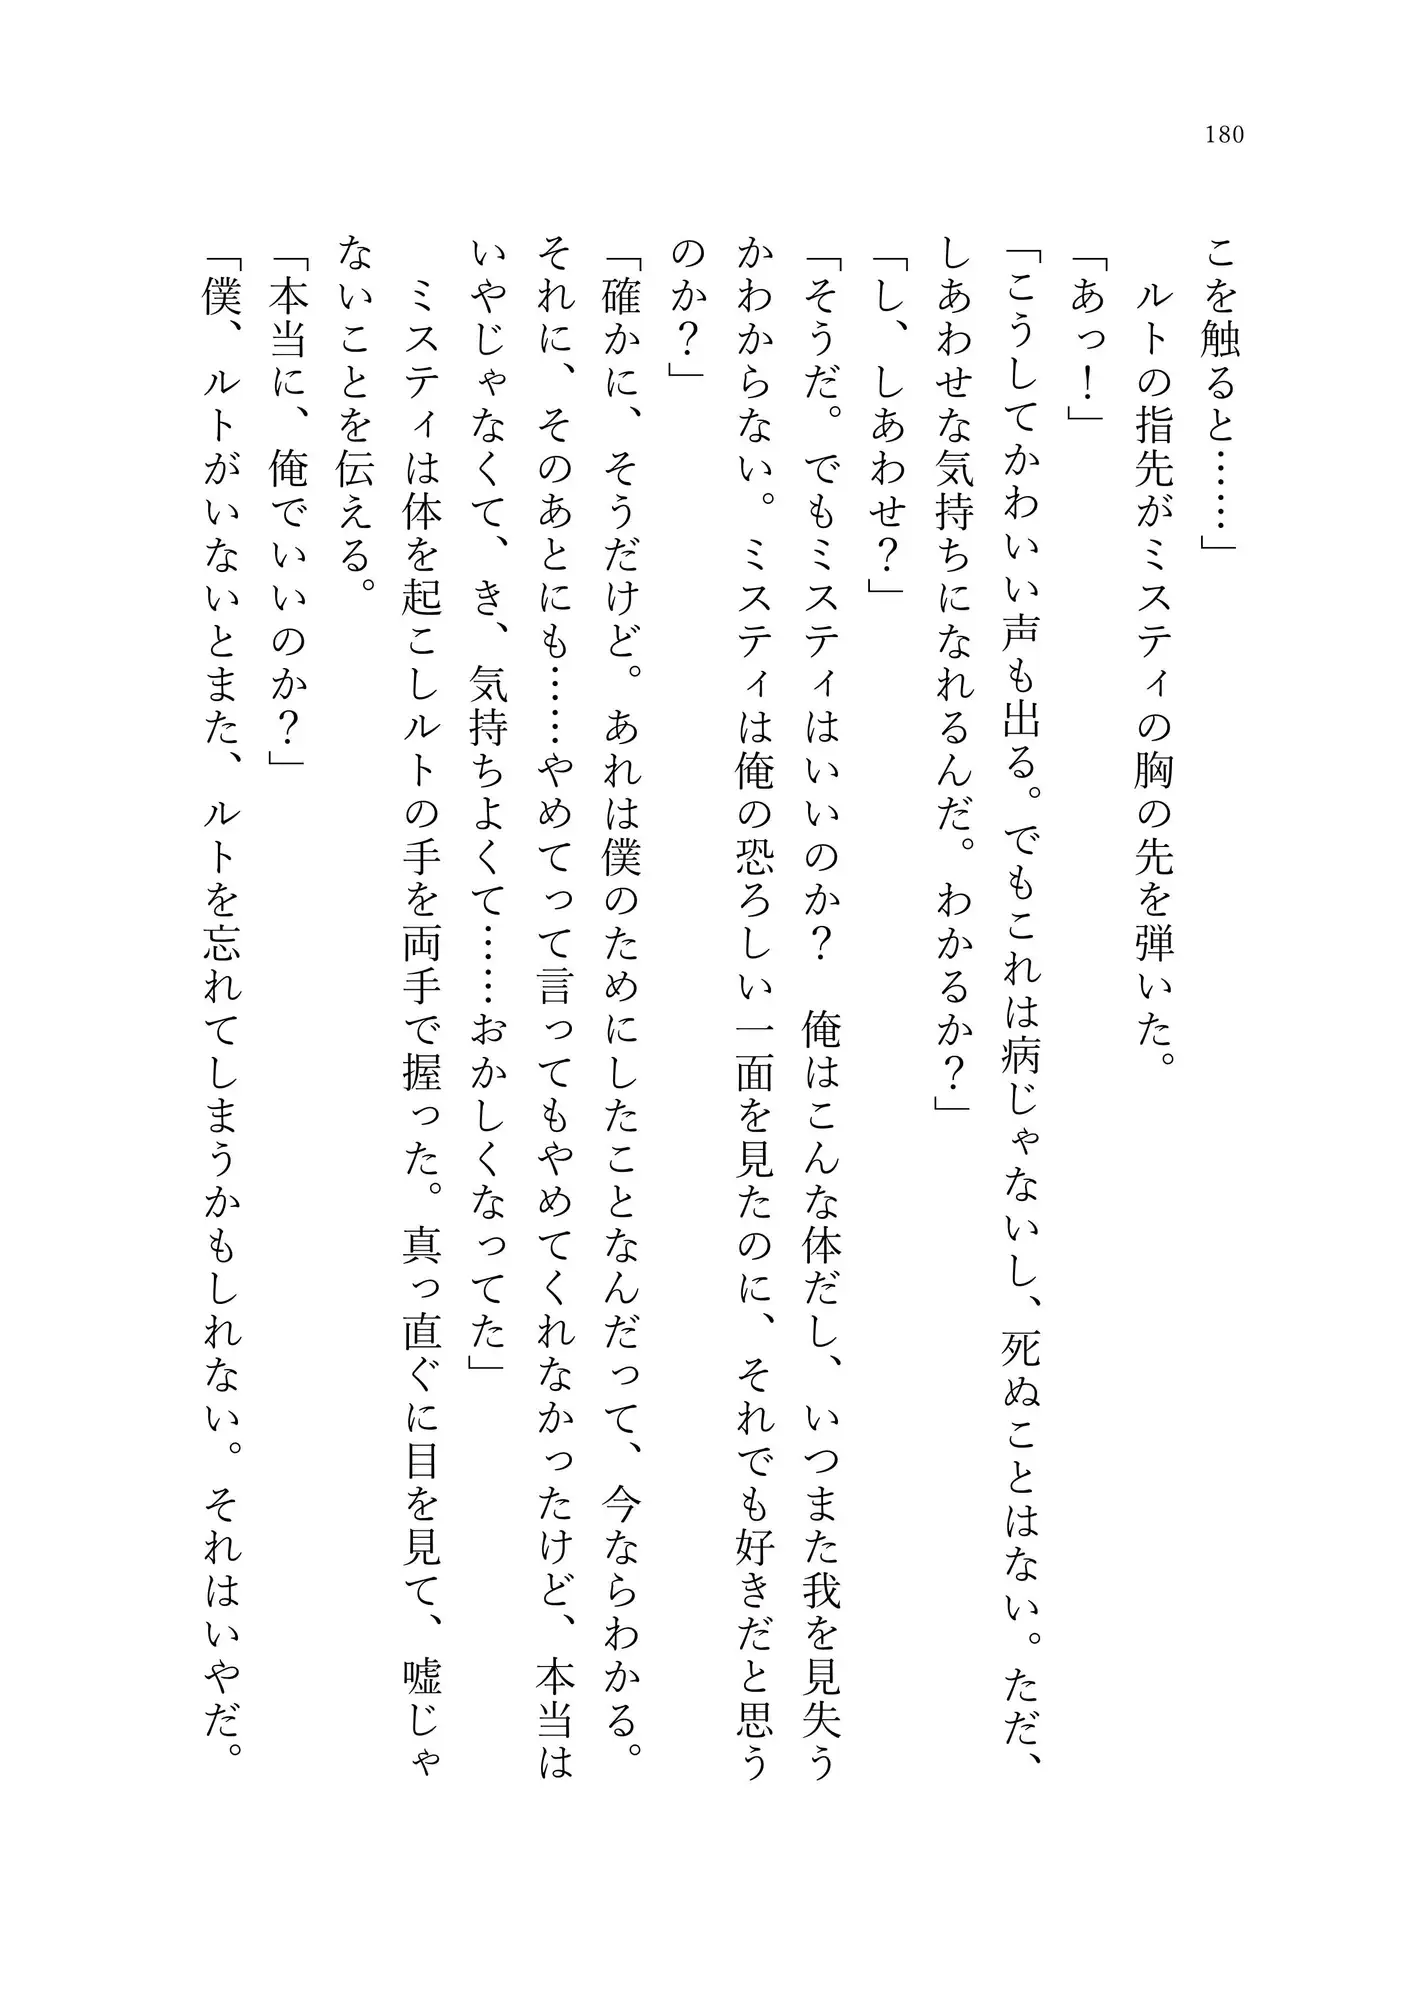 180
こを触ると……」
　ルトの指先がミスティの胸の先を弾いた。
「あっ！」
「こうしてかわいい声も出る。でもこれは病じゃないし、死ぬことはない。ただ、
しあわせな気持ちになれるんだ。わかるか？」
「し、しあわせ？」
「そうだ。でもミスティはいいのか？　俺はこんな体だし、いつまた我を見失う
かわからない。ミスティは俺の恐ろしい一面を見たのに、それでも好きだと思う
のか？」
「確かに、そうだけど。あれは僕のためにしたことなんだって、今ならわかる。
それに、そのあとにも……やめてって言ってもやめてくれなかったけど、本当は
いやじゃなくて、き、気持ちよくて……おかしくなってた」
　ミスティは体を起こしルトの手を両手で握った。真っ直ぐに目を見て、嘘じゃ
ないことを伝える。
「本当に、俺でいいのか？」
「僕、ルトがいないとまた、ルトを忘れてしまうかもしれない。それはいやだ。